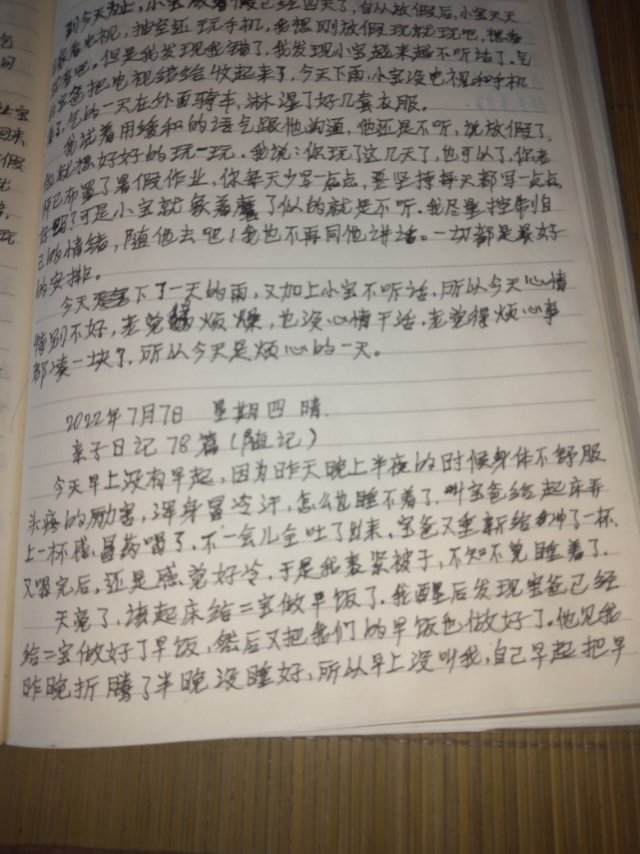 到今天为止,小宝放暑假已经四天了,自从放假后,小宝天天
看电视,抽空还玩手机,我想刚放假玩就玩吧,想看
看吧。但是我发现我错了,我发现小宝越来越不听话了。气
宝爸把电视给收起来了,今天下雨,小宝没电视和手机
气的一天在外面骑车,淋湿了好几套衣服。
我试着用缓和的语气跟他沟通,他还是不听,说放假了,
他就想好好的玩一玩。我说:你玩了这几天了,也可以了,你老
师已布置了暑假作业,你每天少写一点点,要坚持每天都写一点点
好吗?可是小宝就像着魔了似的就是不听。我尽量控制自
己的情绪,随他去吧!我也不再同他讲话。一切都是最好
的安排。
今天下了一天的雨,又加上小宝不听话,所以今天心情
特别不好,老觉得烦燥,也没心情干活,老觉得烦心事
都凑一块了,所以今天是烦心的一天。
2022年7月7日 星期四 晴.
亲子日记78篇(随记)
今天早上没有早起,因为昨天晚上半夜的时候身体不舒服
头疼的励害,浑身冒冷汗,怎么也睡不着了.叫宝爸给起床弄
上一杯感冒药喝了,不一会儿全吐了出来,宝爸又重新给冲了一杯.
又喝完后,还是感觉好冷,于是我裹紧被子,不知不觉睡着了.
天亮了,该起床给二宝做早饭了.我醒后发现宝爸已经
给二宝做好了早饭,然后又把我们的早饭也做好了.他见我
昨晚折腾了半晚没睡好,所以早上没叫我,自己早起把早